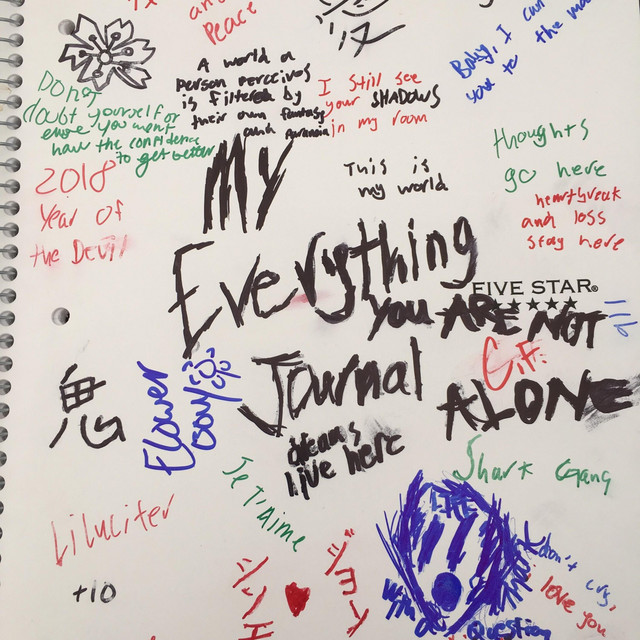 and
Peace
リス
Baby, I can
you to the
A world a
person perceives
is filtered by
their own fantasy
and paranoia
I Still see
your SHADOWS
in my room
Dong
doubt yourself or
else you won't
have the confidence
to get better
thoughts
go here
This is
my world
heartbreak
and loss
stay here
2018
Year of
the Devil
My
Everything
Journal
FIVE STAR®
You ARE NOT
ALONE
G.F.
鬼
Flower
boy
dreams
live here
Je T'Aime
Shark Gang
Lilucifer
+10
LIFE
don't cry,
i love you
with
Question